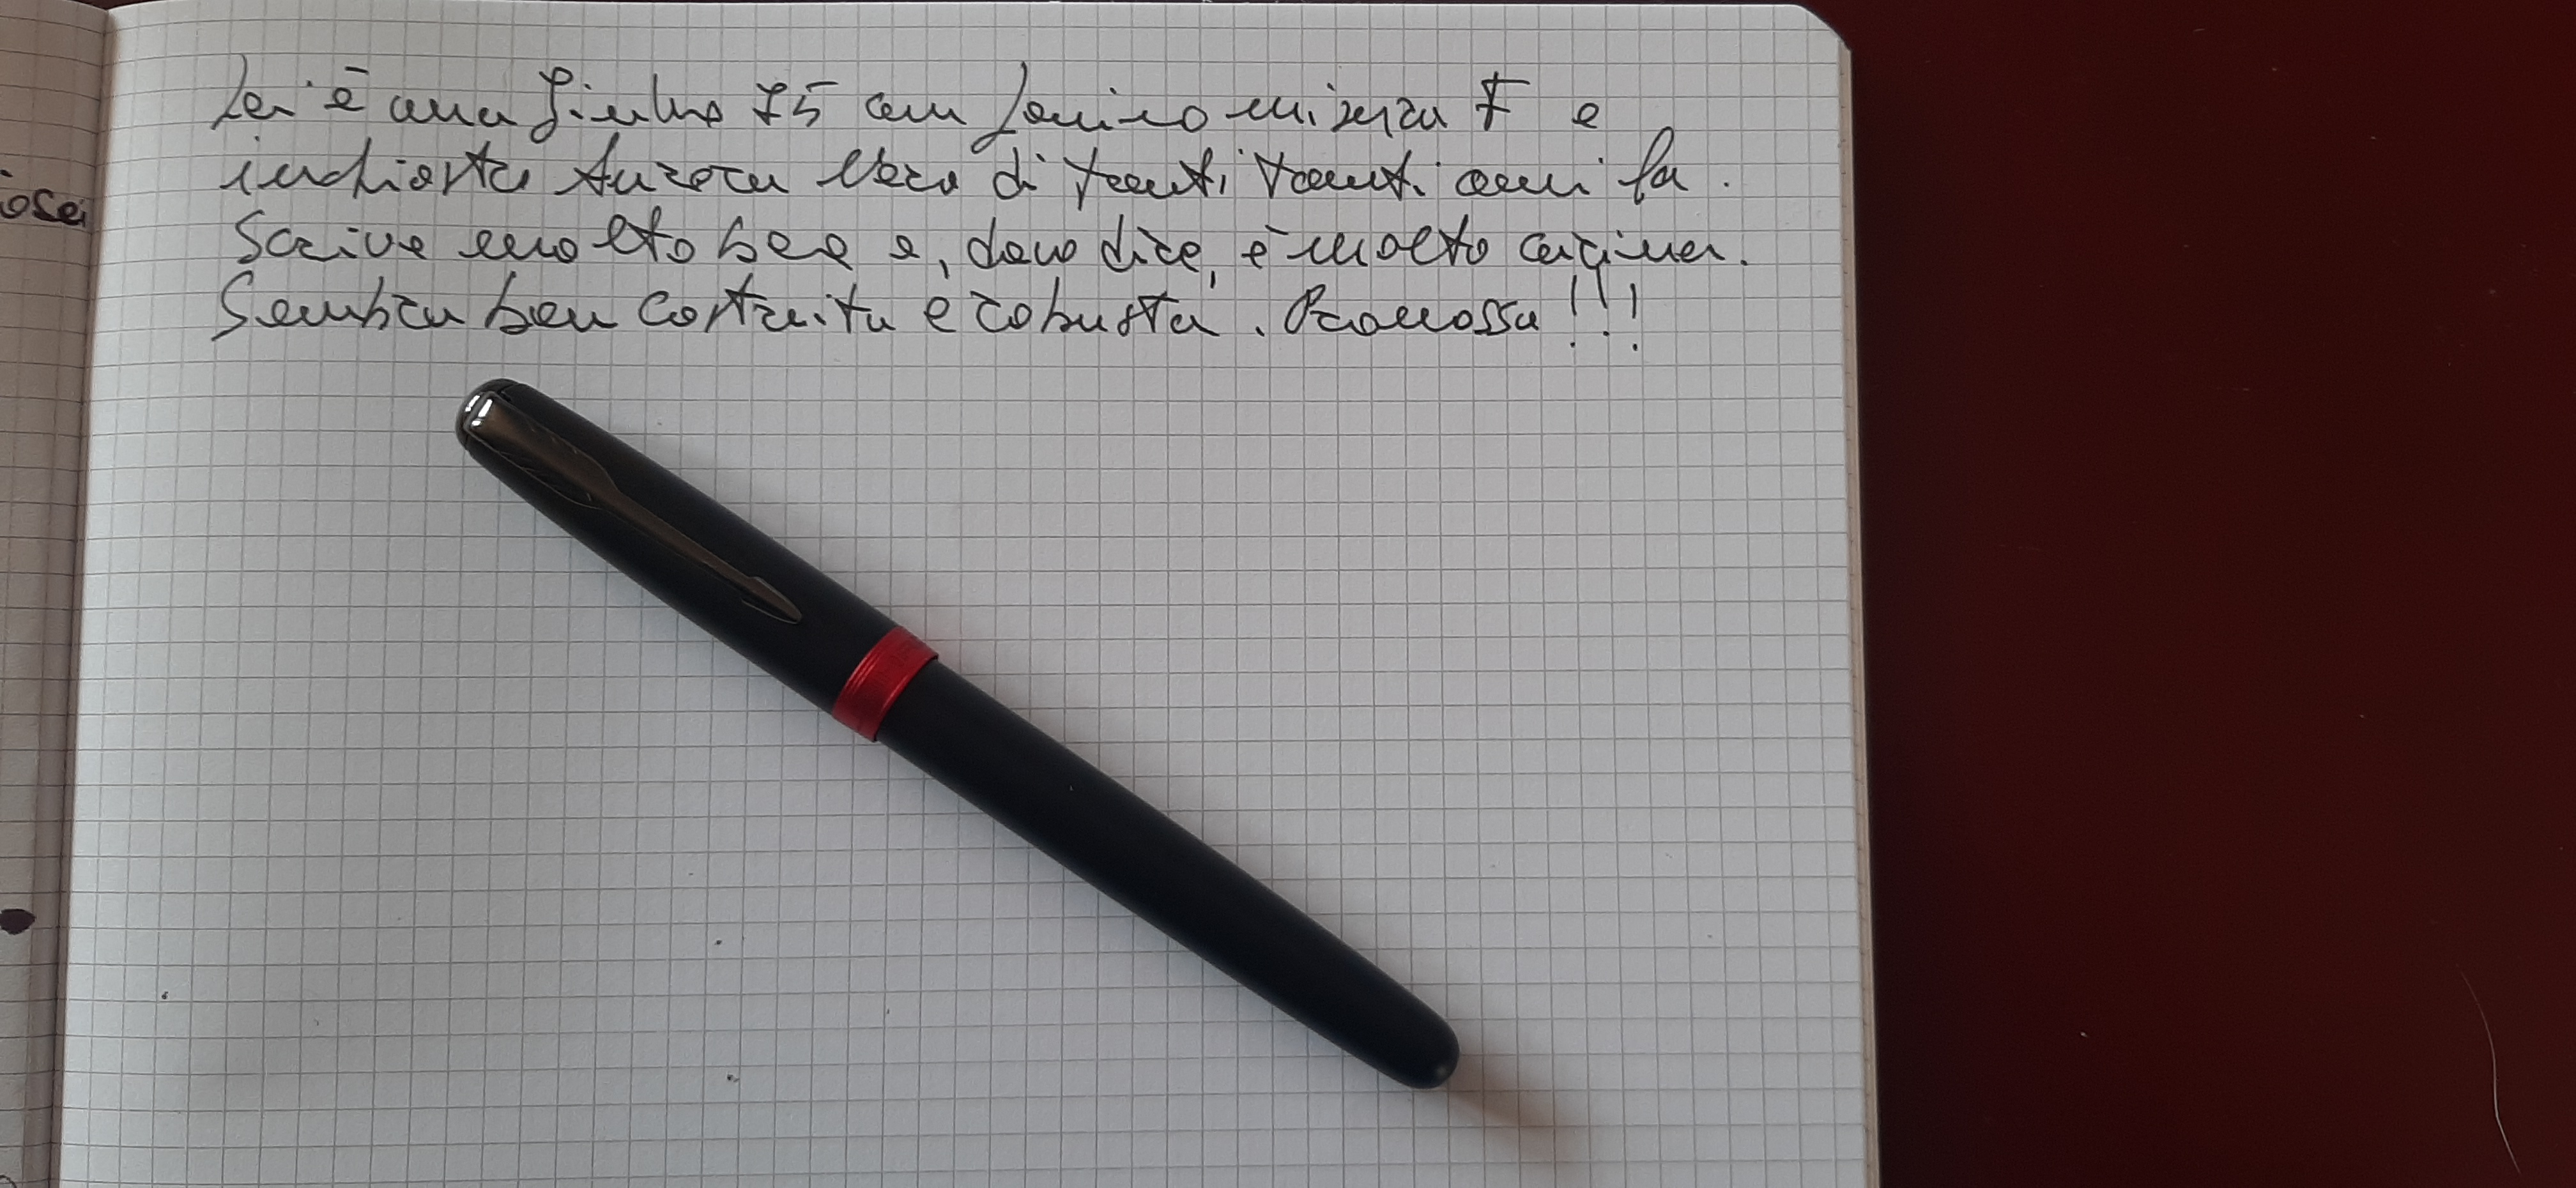 Lei è una Jinhao 75 con pennino misura F e
inchiostro Aurora Nero di tanti tanti anni fa.
Scrive molto bene e, devo dire, è molto carina.
Sembra ben costruita e robusta. Promossa!!!
osei